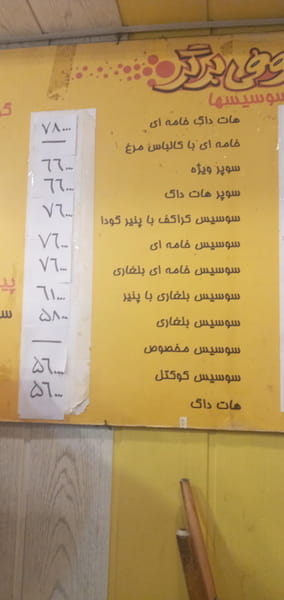 وفی برگر
سوسیسها
هات داگ خامه ای ۷۸۰۰۰
خامه ای با کالباس مرغ —
سوپر ویژه ۶۶۰۰۰
سوپر هات داگ ۶۶۰۰۰
سوسیس کراکف با پنیر گودا ۷۶۰۰۰
سوسیس خامه ای ۷۶۰۰۰
سوسیس خامه ای بلغاری ۷۶۰۰۰
سوسیس بلغاری با پنیر ۶۱۰۰۰
سوسیس بلغاری ۵۸۰۰۰
سوسیس مخصوص —
سوسیس کوکتل ۵۶۰۰۰
هات داگ ۵۶۰۰۰